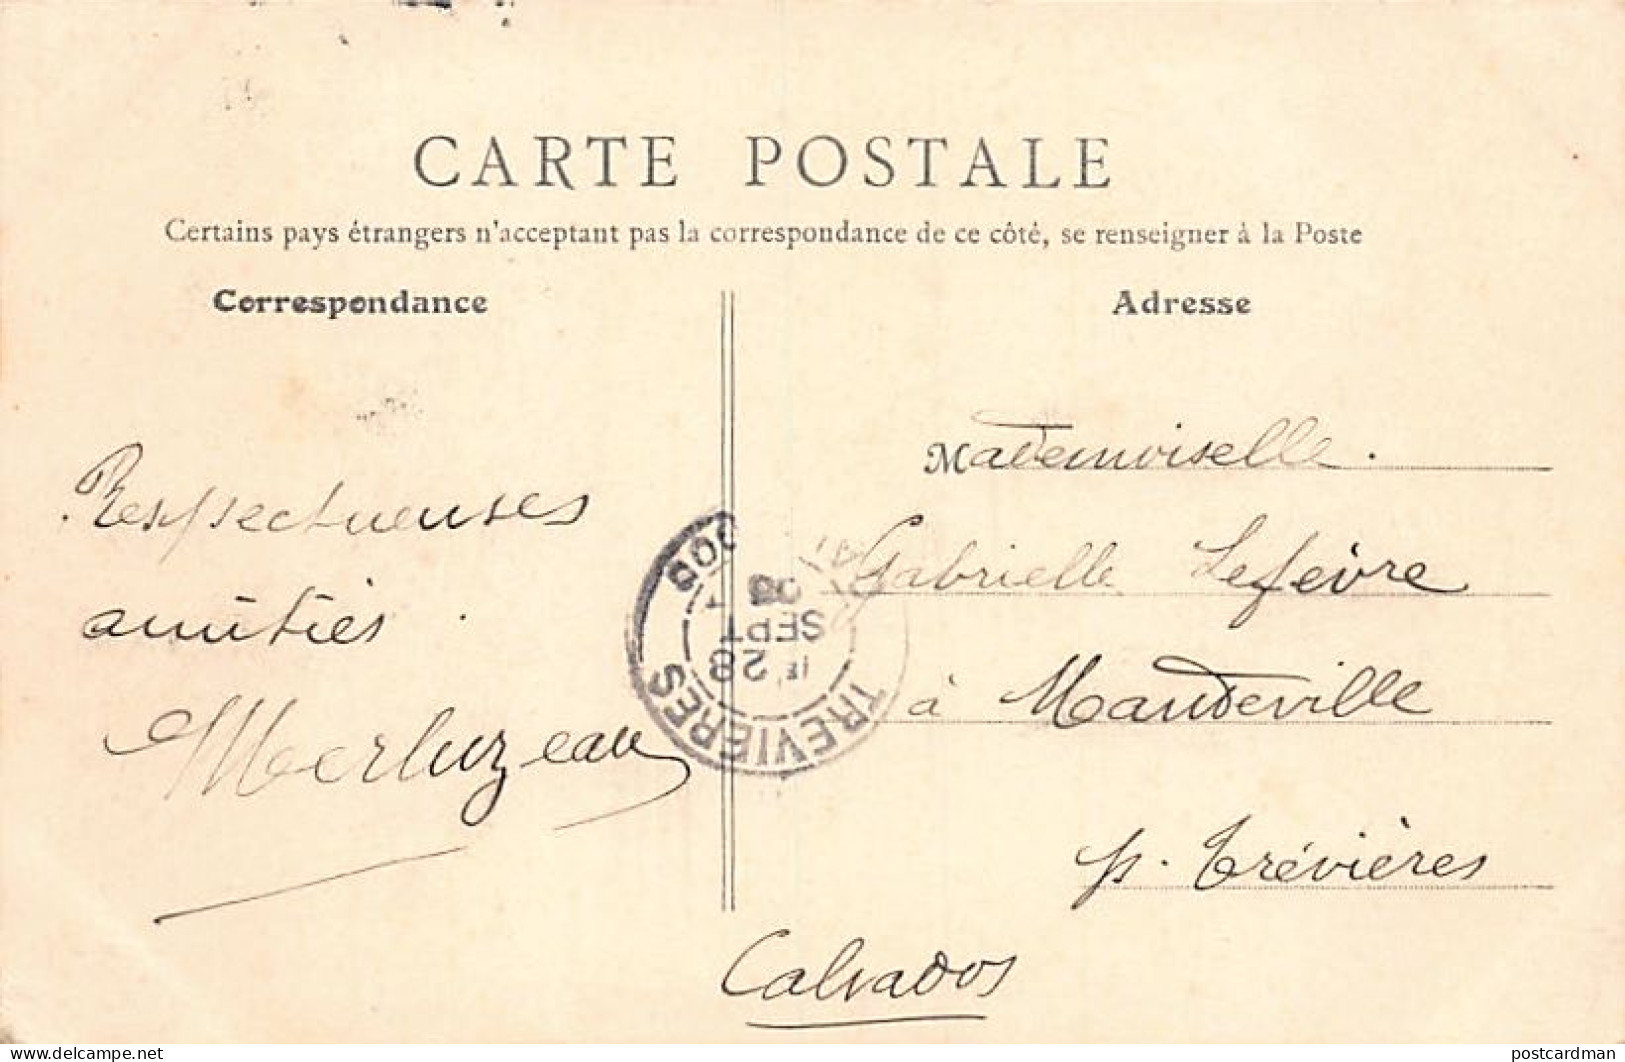 CARTE POSTALE
Certains pays étrangers n'acceptant pas la correspondance de ce côté, se renseigner à la Poste
Correspondance
Adresse
Respectueuses
amitiés
Merluzeau
Mademoiselle.
Gabrielle Lefèvre
à Mandeville
p. Trévières
Calvados
TREVIERES
28
SEPT
06
www.delcampe.net
postcardman